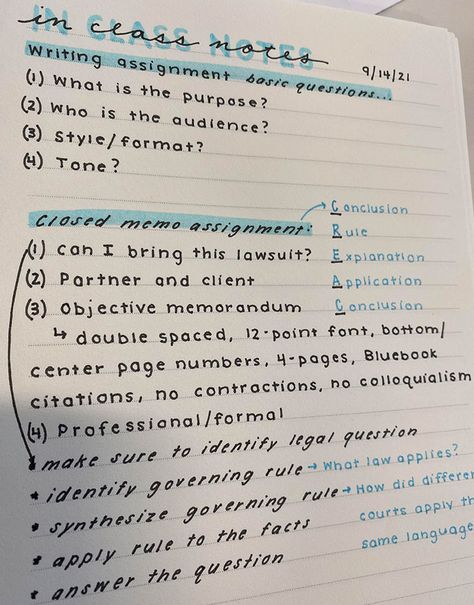 in class notes
9/14/21
Writing assignment basic questions...
(1) What is the purpose?
(2) Who is the audience?
(3) Style/format?
(4) Tone?
closed memo assignment: → Conclusion
Rule
(1) can I bring this lawsuit? Explanation
(2) Partner and client Application
(3) Objective memorandum Conclusion
↳ double spaced, 12-point font, bottom/
center page numbers, 4-pages, Bluebook
citations, no contractions, no colloquialism
(4) Professional/formal
* make sure to identify legal question
* identify governing rule → What law applies?
* synthesize governing rule → How did
courts apply
* apply rule to the facts
same language
* answer the question